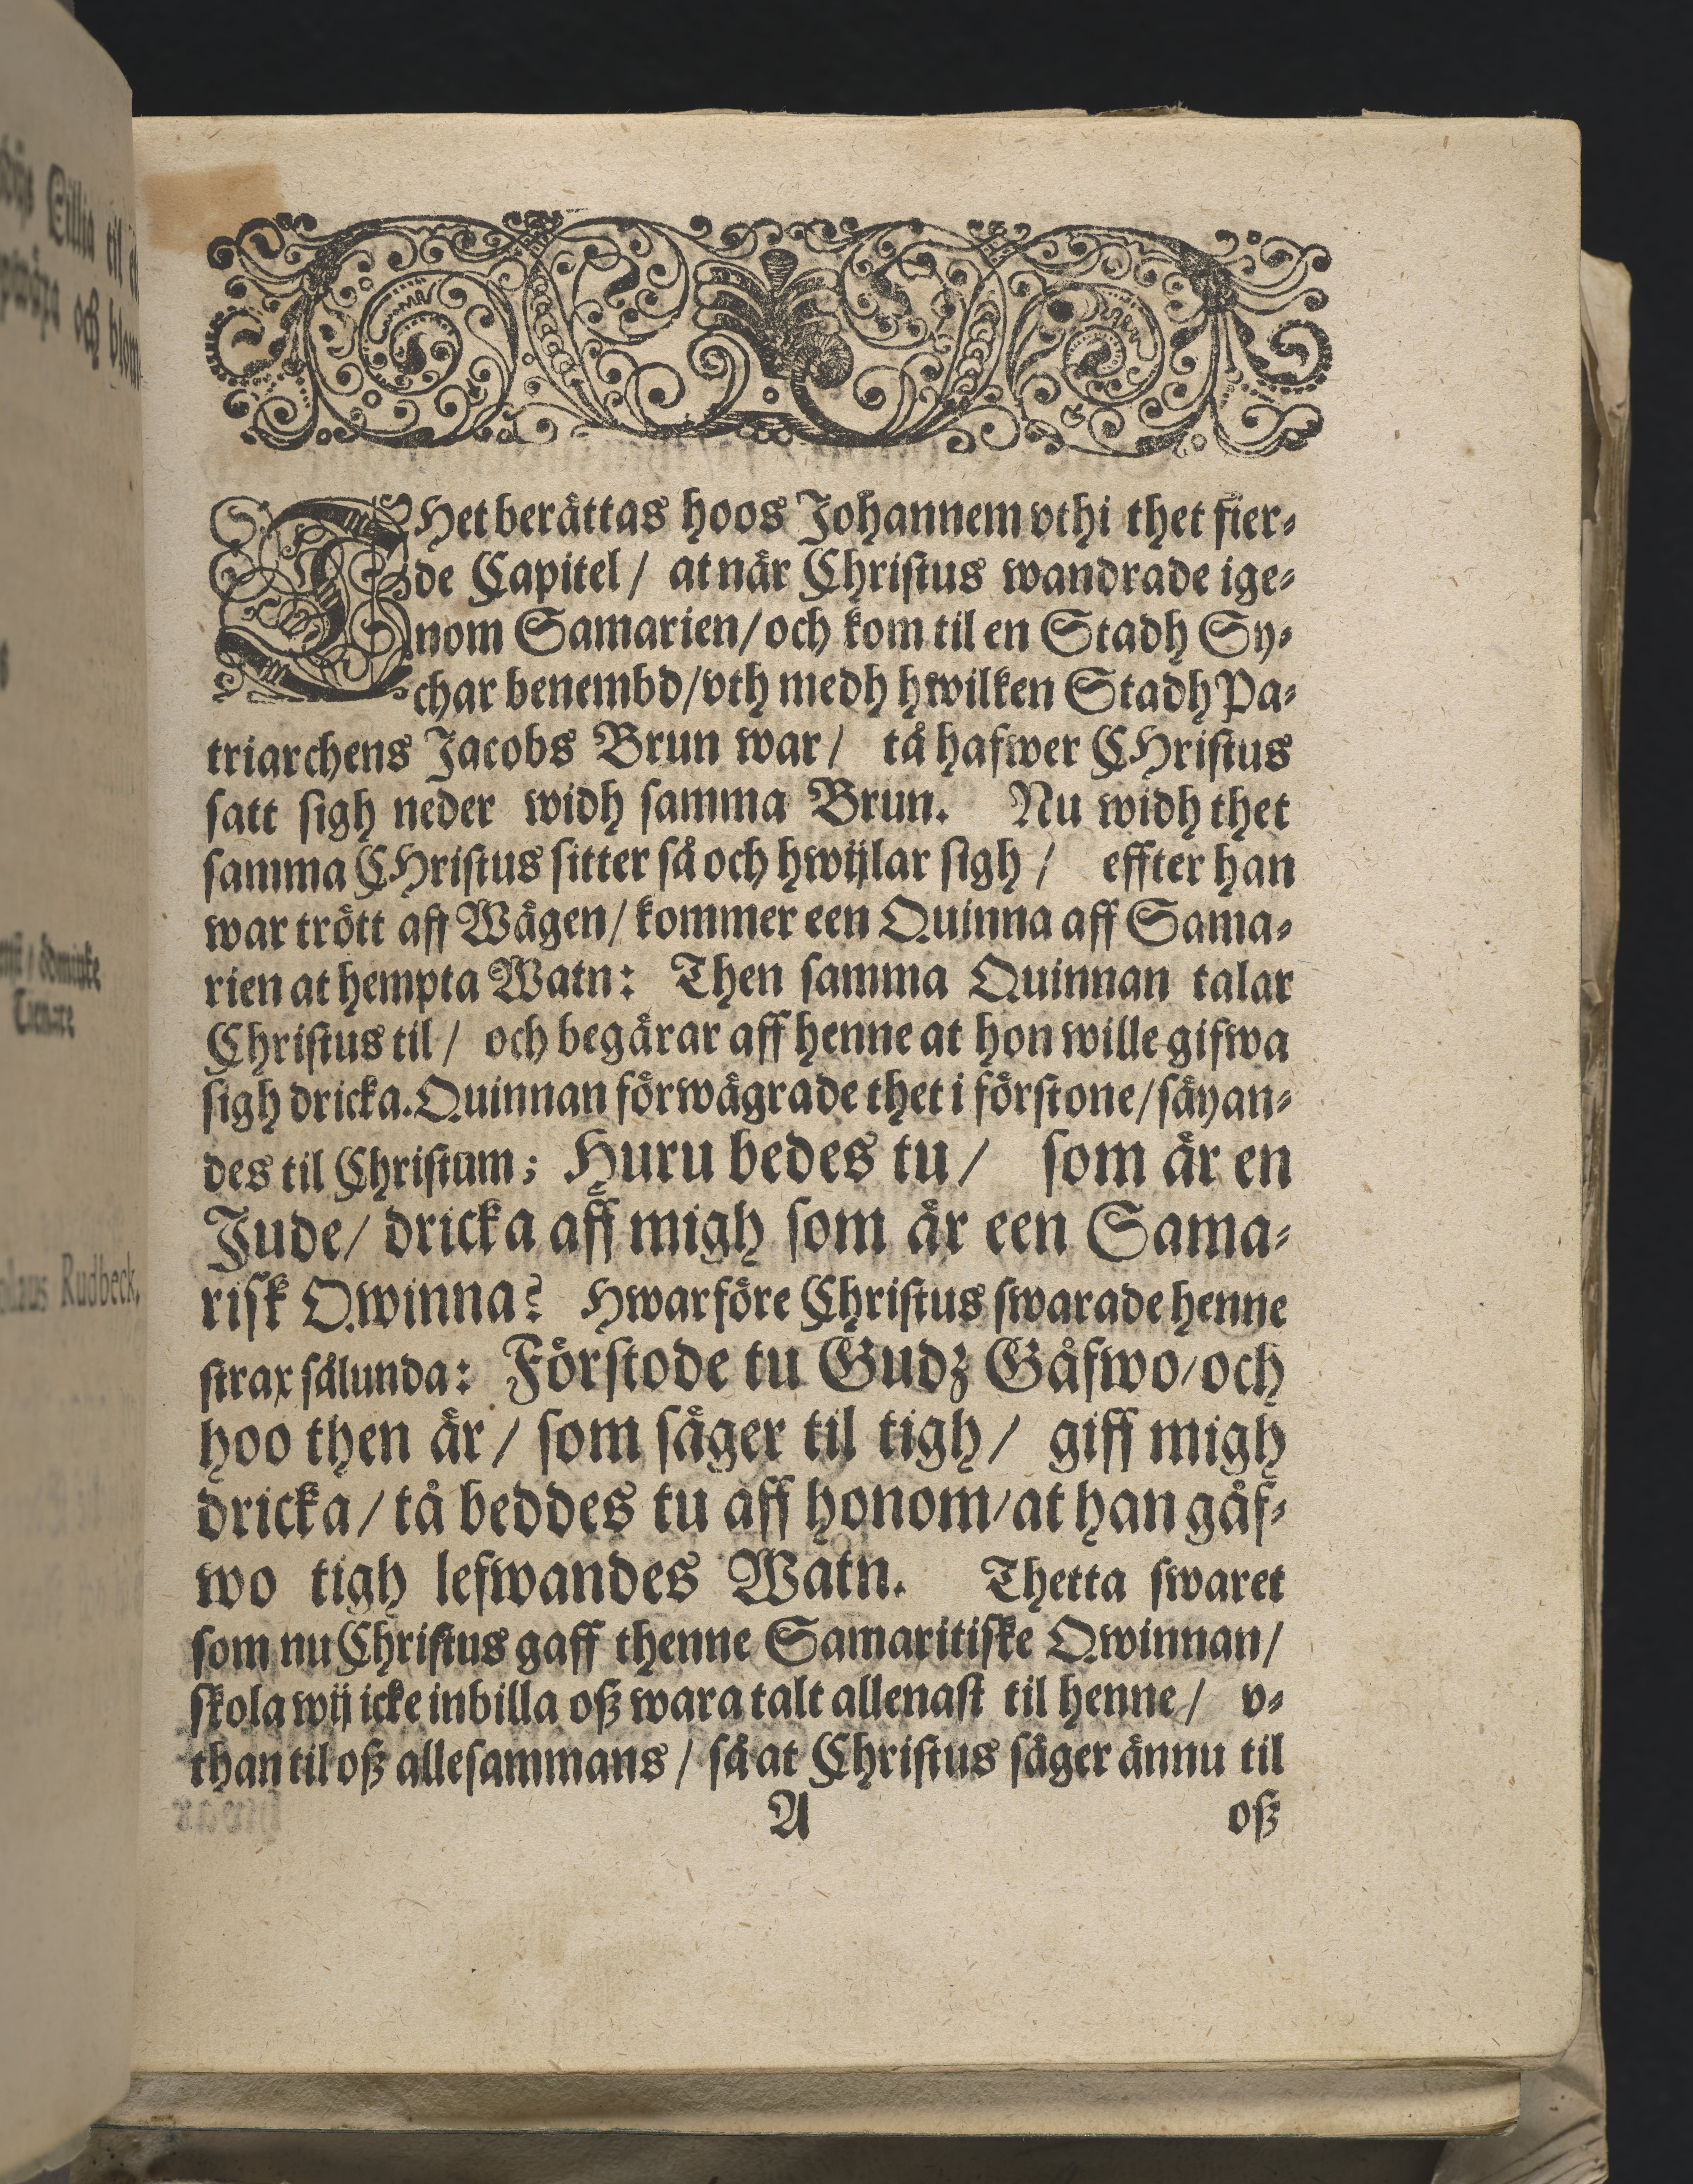 THet berättas hoos Johannem vthi thet fier⸗
de Capitel / at när Christus wandrade ige⸗
nom Samarien/ och kom til en Stadh Sy⸗
char benembd/vth medh hwilken Stadh Pa⸗
triarchens Jacobs Brun war / tå hafwer CHristus
satt sigh neder widh samma Brun. Nu widh thet
samma CHristus sitter så och hwijlar sigh / effter han
war trött aff Wägen/ kommer een Quinna aff Sama⸗
rien at hempta Watn: Then samma Quinnan talar
Christus til / och begärar aff henne at hon wille gifwa
sigh dricka. Quinnan förwägrade thet i förstone/ säyan⸗
des til Christum; Huru bedes tu / som är en
Jude/ dricka aff migh som är een Sama⸗
risk Qwinna? Hwarföre Christus swarade henne
strax sålunda: Förstode tu Gudz Gåfwo/och
hoo then är / som säger til tigh / giff migh
dricka / tå beddes tu aff honom/at han gåf⸗
wo tigh lefwandes Watn. Thetta swaret
som nu Christus gaff thenne Samaritiske Qwinnan/
skola wij icke inbilla oß wara talt allenast til henne / v⸗
than til oß allesammans / så at Christus säger ännu til
A oß
Rudbeck,
Tienare
och
til